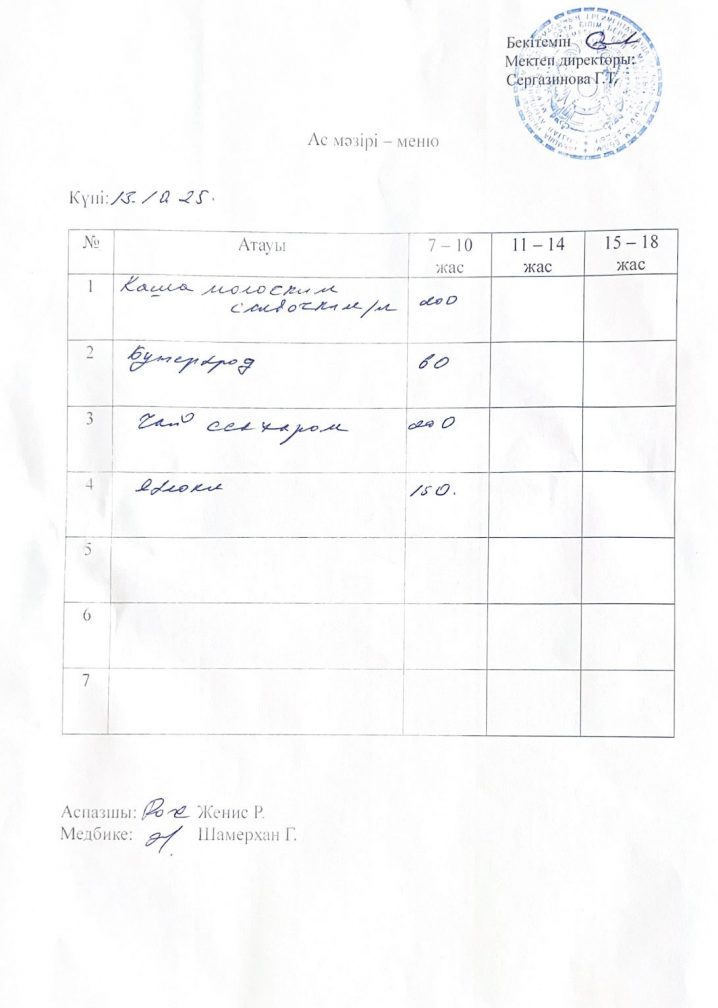 Бекітемін
Мектеп директоры:
Сергазинова Г.Т.
Ас мәзірі – меню
Күні: 13.10 25.
№ Атауы 7 – 10 жас 11 – 14 жас 15 – 18 жас
1 Каша молоским 200
сливочким/м
2 Бутерброд 60
3 Чай ссахаром 200
4 Яблоки 150.
5
6
7
Аспазшы: Женис Р.
Медбике: Шамерхан Г.